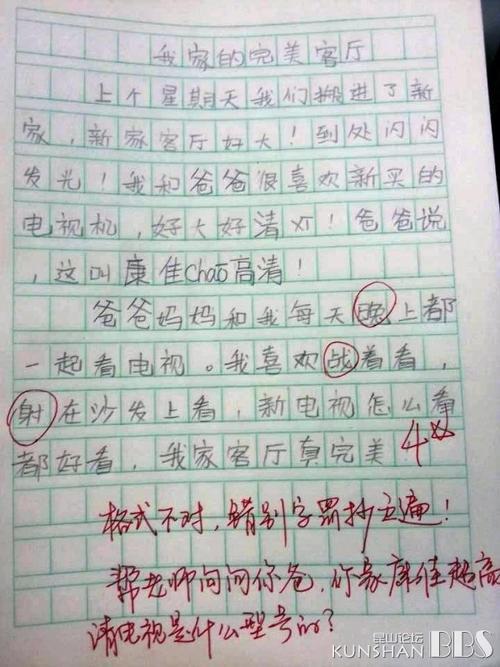 我家的完美客厅
上个星期天我们搬进了新
家，新家客厅好大！到处闪闪
发光！我和爸爸很喜欢新买的
电视机，好大好清灯！爸爸说
，这叫康佳Chāo高清！
爸爸妈妈和我每天晚上都
一起看电视。我喜欢战着看，
射在沙发上看，新电视怎么看
都好看，我家客厅真完美
格式不对，错别字罚抄五遍！
帮老师问问你爸，你家康佳超高
清电视是什么型号的？
昆山论坛
KUNSHAN BBS